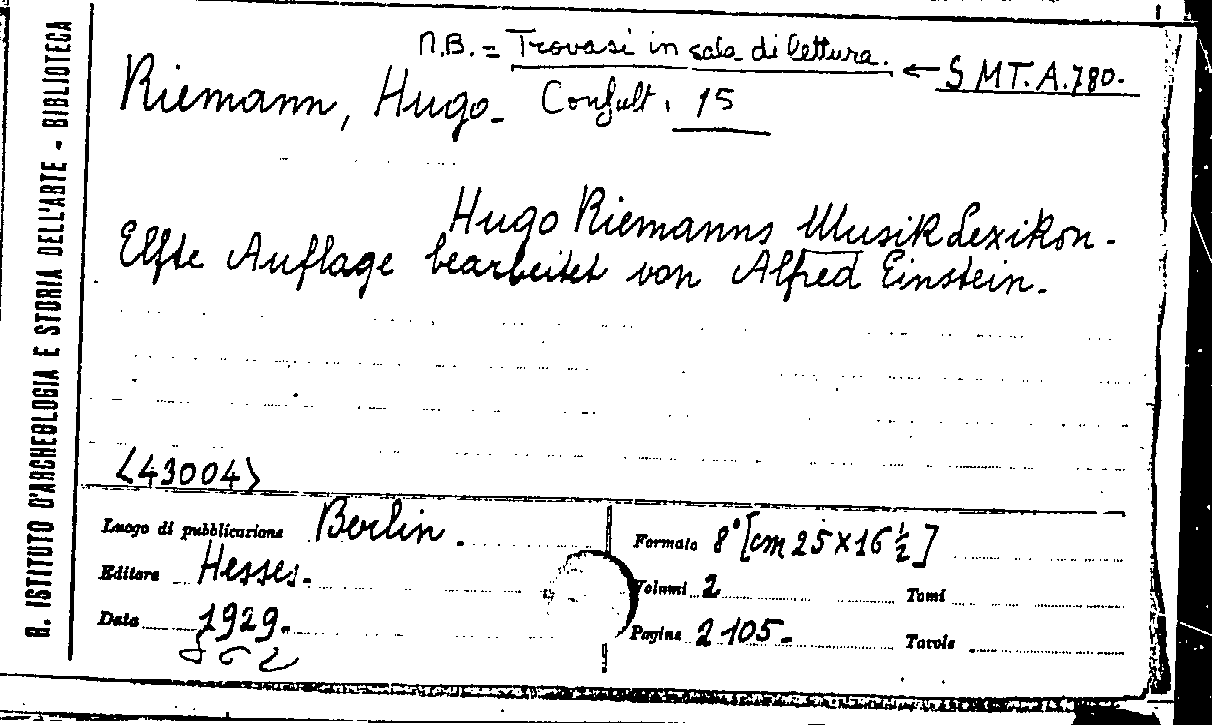 R. ISTITUTO D'ARCHEOLOGIA E STORIA DELL'ARTE - BIBLIOTECA
N.B. = Trovasi in sala di lettura. ← S MT. A. 780.
Riemann, Hugo. Consult. 15
Hugo Riemanns Musik Lexikon.
Elfte Auflage bearbeitet von Alfred Einstein.
<43004>
Luogo di pubblicazione Berlin.
Editore Hesses.
Data 1929.
Formato 8° [cm 25 x 16 ½]
Volumi 2 Tomi
Pagine 2105. Tavole